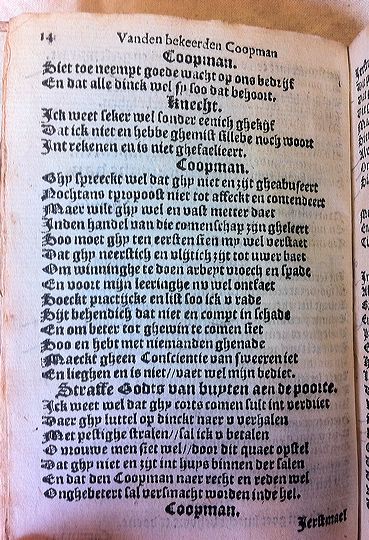 14 Vanden bekeerden Coopman
Coopman.
Siet toe neempt goede wacht op ons bedrijf
En dat alle dinck wel sy soo dat behoort.
Knecht.
Ick weet seker wel sonder eenich ghekijf
Dat ick niet en hebbe ghemist sillebe noch woort
Int rekenen en is niet ghefaelieert.
Coopman.
Ghy spreeckt wel dat ghy niet en zijt gheabuseert
Nochtans tpropoost niet tot affeckt en contendeert
Maer wilt ghy wel en vast metter daet
Inden handel van die comenschap zijn gheleert
Soo moet ghy ten eersten sien my wel verstaet
Dat ghy neerstich en vlijtich zijt tot uwer baet
Om winninghe te doen arbeyt vroech en spade
En voort mijn leeringhe nv wel ontfaet
Soeckt practijcke en list soo ick v rade
Zijt behendich dat niet en compt in schade
En om beter tot ghewin te comen siet
Soo en hebt met niemanden ghenade
Maeckt gheen Conscientie van sweeren iet
En lieghen en is niet//vaer wel mijn bediet.
Straffe Godts van buyten aen de poorte.
Ick weet wel dat ghy corts comen sult int verdriet
Daer ghy luttel op dinckt naer v verhalen
Met pestighe stralen//sal ick v betalen
O vrouwe men siet wel//door dit quaet opstel
Dat ghy niet en zijt int huys binnen der salen
En dat den Coopman naer recht en reden wel
Onghebetert sal versmacht worden inde hel.
Coopman.
Ierstmael